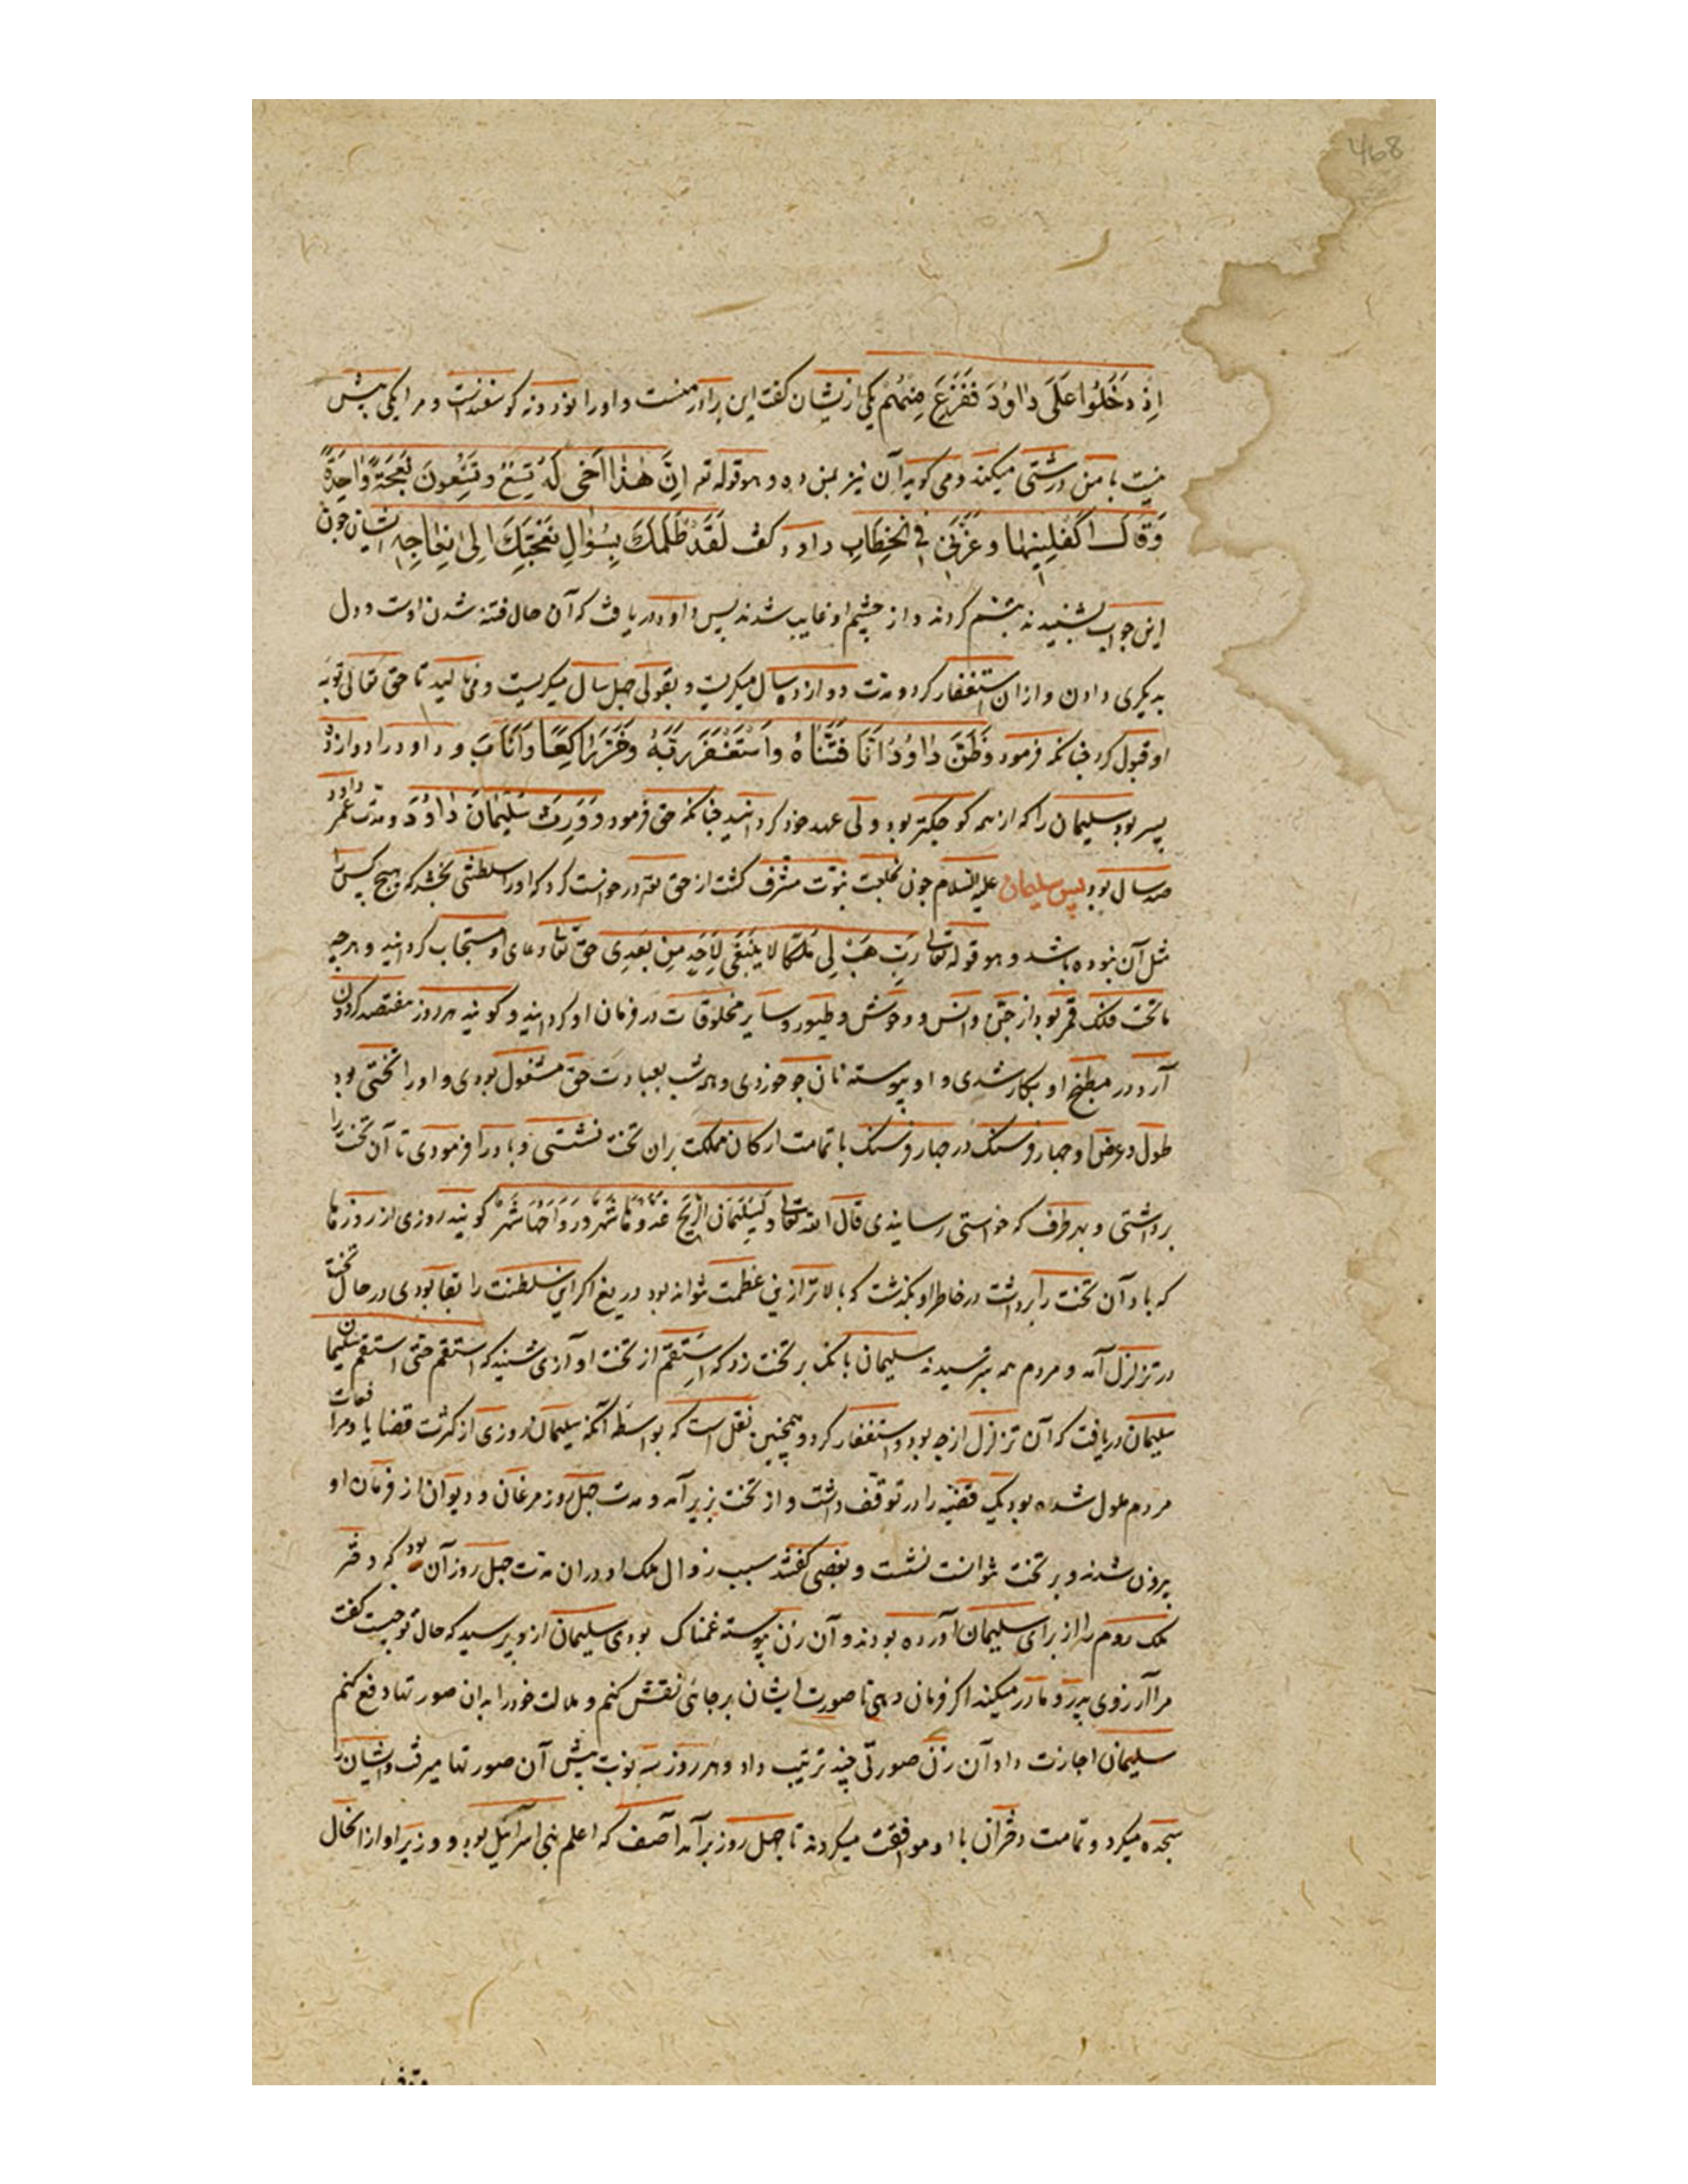 468
اِذْ دَخَلُوا عَلَى دٰاوُدَ فَفَزِعَ مِنْهُمْ یکی ازیشان کفت این برادر منست و اورا نود و نه کوسفندست و مرا یکی بیش
نیست با من درشتی میکند و می کوید آن نیز بمن ده و هو قوله تع اِنَّ هٰذٰا اَخِی لَهُ تِسْعٌ وَ تِسْعُونَ نَعْجَةً وٰاحِدَةً
وَ قٰالَ اَکْفِلْنِیهٰا وَ عَزَّنِی فِی الْخِطٰابِ داود کفت لَقَدْ ظَلَمَکَ بِسُؤٰالِ نَعْجَتِکَ اِلیٰ نِعٰاجِهِ ایشان جون
این جواب بشنیدند تبسم کردند و از چشم او غایب شدند پس داود دریافت که آن حال فتنه شدن اوست و دل
به یکری دادن و ازان استغفار کرد و مدت دوازده سال میکریست و بقولی جهل سال میکریست و می نالید تا حق تعالی توبه
او قبول کرد جنانکه فرمود وَظَنَّ دٰاوُدُ اَنَّمٰا فَتَنّٰاهُ وَاسْتَغْفَرَ رَبَّهُ وَخَرَّ رٰاکِعًا وَاَنٰابَ و داود را دوازده
پسر بود سلیمان را که از همه کوجکتر بود ولی عهد خود کردانید جنانکه حق فرمود وَوَرِثَ سُلَیْمٰانُ دٰاوُدَ و مدت عمر داود
صد سال بود پس سلیمان علیه السلام جون بخلعت نبوّت مشرف کشت از حق تع درخواست کرد که اورا سلطنتی بخشد که هیج کس را
مثل آن نبوده باشد و هو قوله تعالی رَبِّ هَبْ لِی مُلْکًا لٰا یَنْبَغِی لِاَحَدٍ مِنْ بَعْدِی حق تعا دعای او مستجاب کردانید و هرجه
ماتحت فلک قمر بود از جنّ و انس و وحوش و طیور و سایر مخلوقات در فرمان او کردانید و کویند هر روز هفتصد کردون
آرد در مطبخ او بکار شدی و او پیوسته نان جو خوردی و همه شب بعبادت حق مشغول بودی و اورا تختی بود
طول و عرض او جهار فرسنک در جهار فرسنک با تمامت ارکان مملکت بران تخت نشستی و باد را فرمودی تا آن تخت را
برداشتی و بهر طرف که خواستی رسانیدی قال الله تعالی وَلِسُلَیْمٰانَ الرِّیحَ غُدُوُّهٰا شَهْرٌ وَرَوٰاحُهٰا شَهْرٌ کویند روزی از روزها
که باد آن تخت را برداشت در خاطر او بکذشت که بالاتر ازین عظمت نتواند بود دریغ اکر این سلطنت را بقا بودی در حال تخت
در تزلزل آمد و مردم همه بترسیدند سلیمان بانک بر تخت زد که اِستقم از تخت او آوازی شنید که استقم حتی استقم سلیمان
سلیمان دریافت که آن تزلزل ازجه بود و استغفار کرد و همچنین نقل است که بواسطه آنکه سلیمان روزی از کثرت قضایا و مرافعات
مردم ملول شده بود یک قضیّه را در توقف داشت و از تخت بزیر آمد و مدت جهل روز مرغان و دیوان از فرمان او
بیرون شدند و بر تخت نتوانست نشست و بعضی کفتند سبب زوال ملک او دران مدت جهل روز آن بود که دختر
ملک روم را از برای سلیمان آورده بودند و آن زن پیوسته غمناک بودی سلیمان ازو پرسید که حال تو جیست کفت
مرا آرزوی پدر و مادر میکند اکر فرمان دهی تا صورت ایشان بر جائی نقش کنم و ملالت خود را بدان صورتها دفع کنم
سلیمان اجازت داد آن زن صورتی چند ترتیب داد و هر روز سه نوبت بیش آن صورتها میرفت و ایشان را
سجده میکرد و تمامت دختران با او موافقت میکردند تا جهل روز برآمد آصف که اعلم بنی اسرائیل بود و وزیر او ازان حال